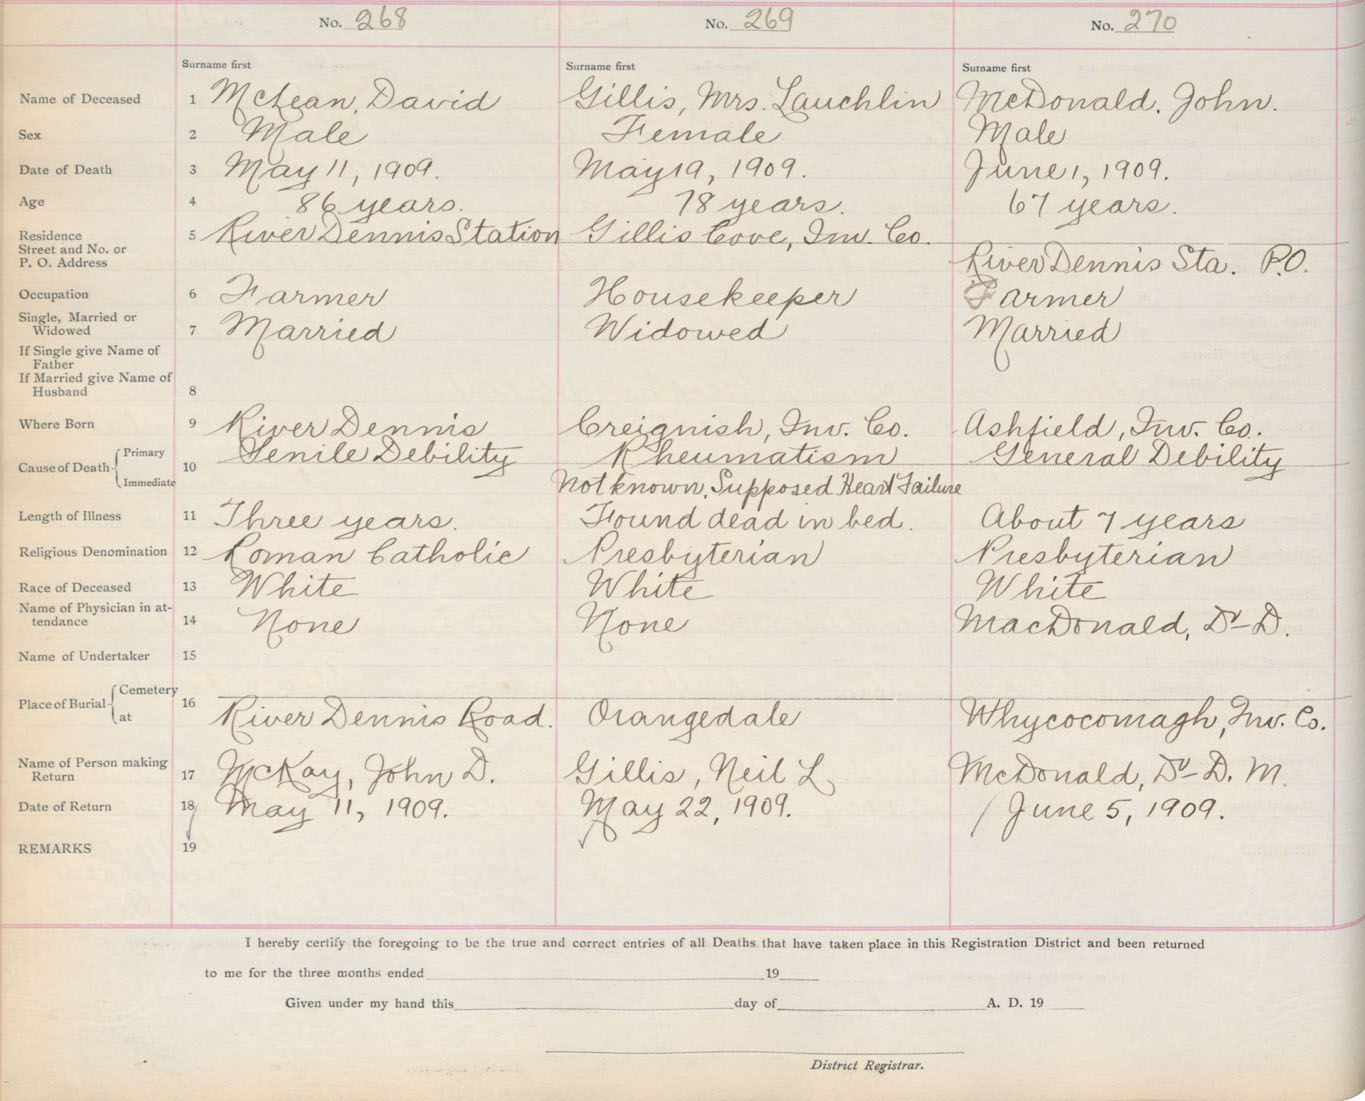 No. 268 No. 269 No. 270
Surname first Surname first Surname first
Name of Deceased 1 McLean, David Gillis, Mrs. Lauchlin McDonald, John.
Sex 2 Male Female Male
Date of Death 3 May 11, 1909. May 19, 1909. June 1, 1909.
Age 4 86 years. 78 years. 67 years.
Residence
Street and No. or
P. O. Address 5 River Dennis Station Gillis Cove, Inv. Co. River Dennis Sta. P.O.
Occupation 6 Farmer Housekeeper Farmer
Single, Married or
Widowed 7 Married Widowed Married
If Single give Name of
Father
If Married give Name of
Husband 8
Where Born 9 River Dennis Creignish, Inv. Co. Ashfield, Inv. Co.
Cause of Death 10 Primary Senile Debility Rheumatism General Debility
Immediate Not known, Supposed Heart Failure
Length of Illness 11 Three years. Found dead in bed. About 7 years
Religious Denomination 12 Roman Catholic Presbyterian Presbyterian
Race of Deceased 13 White White White
Name of Physician in at-
tendance 14 None None MacDonald, Dr D.
Name of Undertaker 15
Place of Burial 16 Cemetery
at River Dennis Road. Orangedale Whycocomagh, Inv. Co.
Name of Person making
Return 17 McKay, John D. Gillis, Neil L McDonald, Dr D. M.
Date of Return 18 May 11, 1909. May 22, 1909. June 5, 1909.
REMARKS 19
I hereby certify the foregoing to be the true and correct entries of all Deaths that have taken place in this Registration District and been returned
to me for the three months ended 19
Given under my hand this day of A. D. 19
District Registrar.